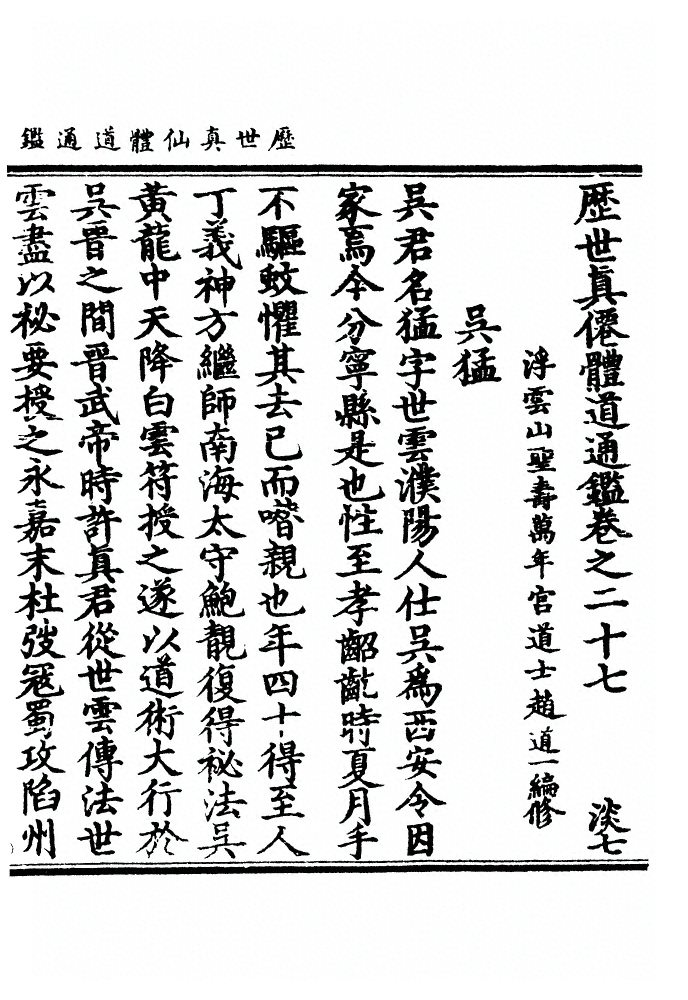 歷世真仙體道通鑑
歷世真僊體道通鑑卷之二十七 淡七
浮雲山聖壽萬年宮道士趙道一編修
吳猛
吳君名猛字世雲濮陽人仕吳為西安令因
家焉今分寧縣是也性至孝齠齔時夏月手
不驅蚊懼其去己而噆親也年四十得至人
丁義神方繼師南海太守鮑靚復得祕法吳
黃龍中天降白雲符授之遂以道術大行於
吳晉之間晉武帝時許真君從世雲傳法世
雲盡以祕要授之永嘉末杜弢寇蜀攻陷州